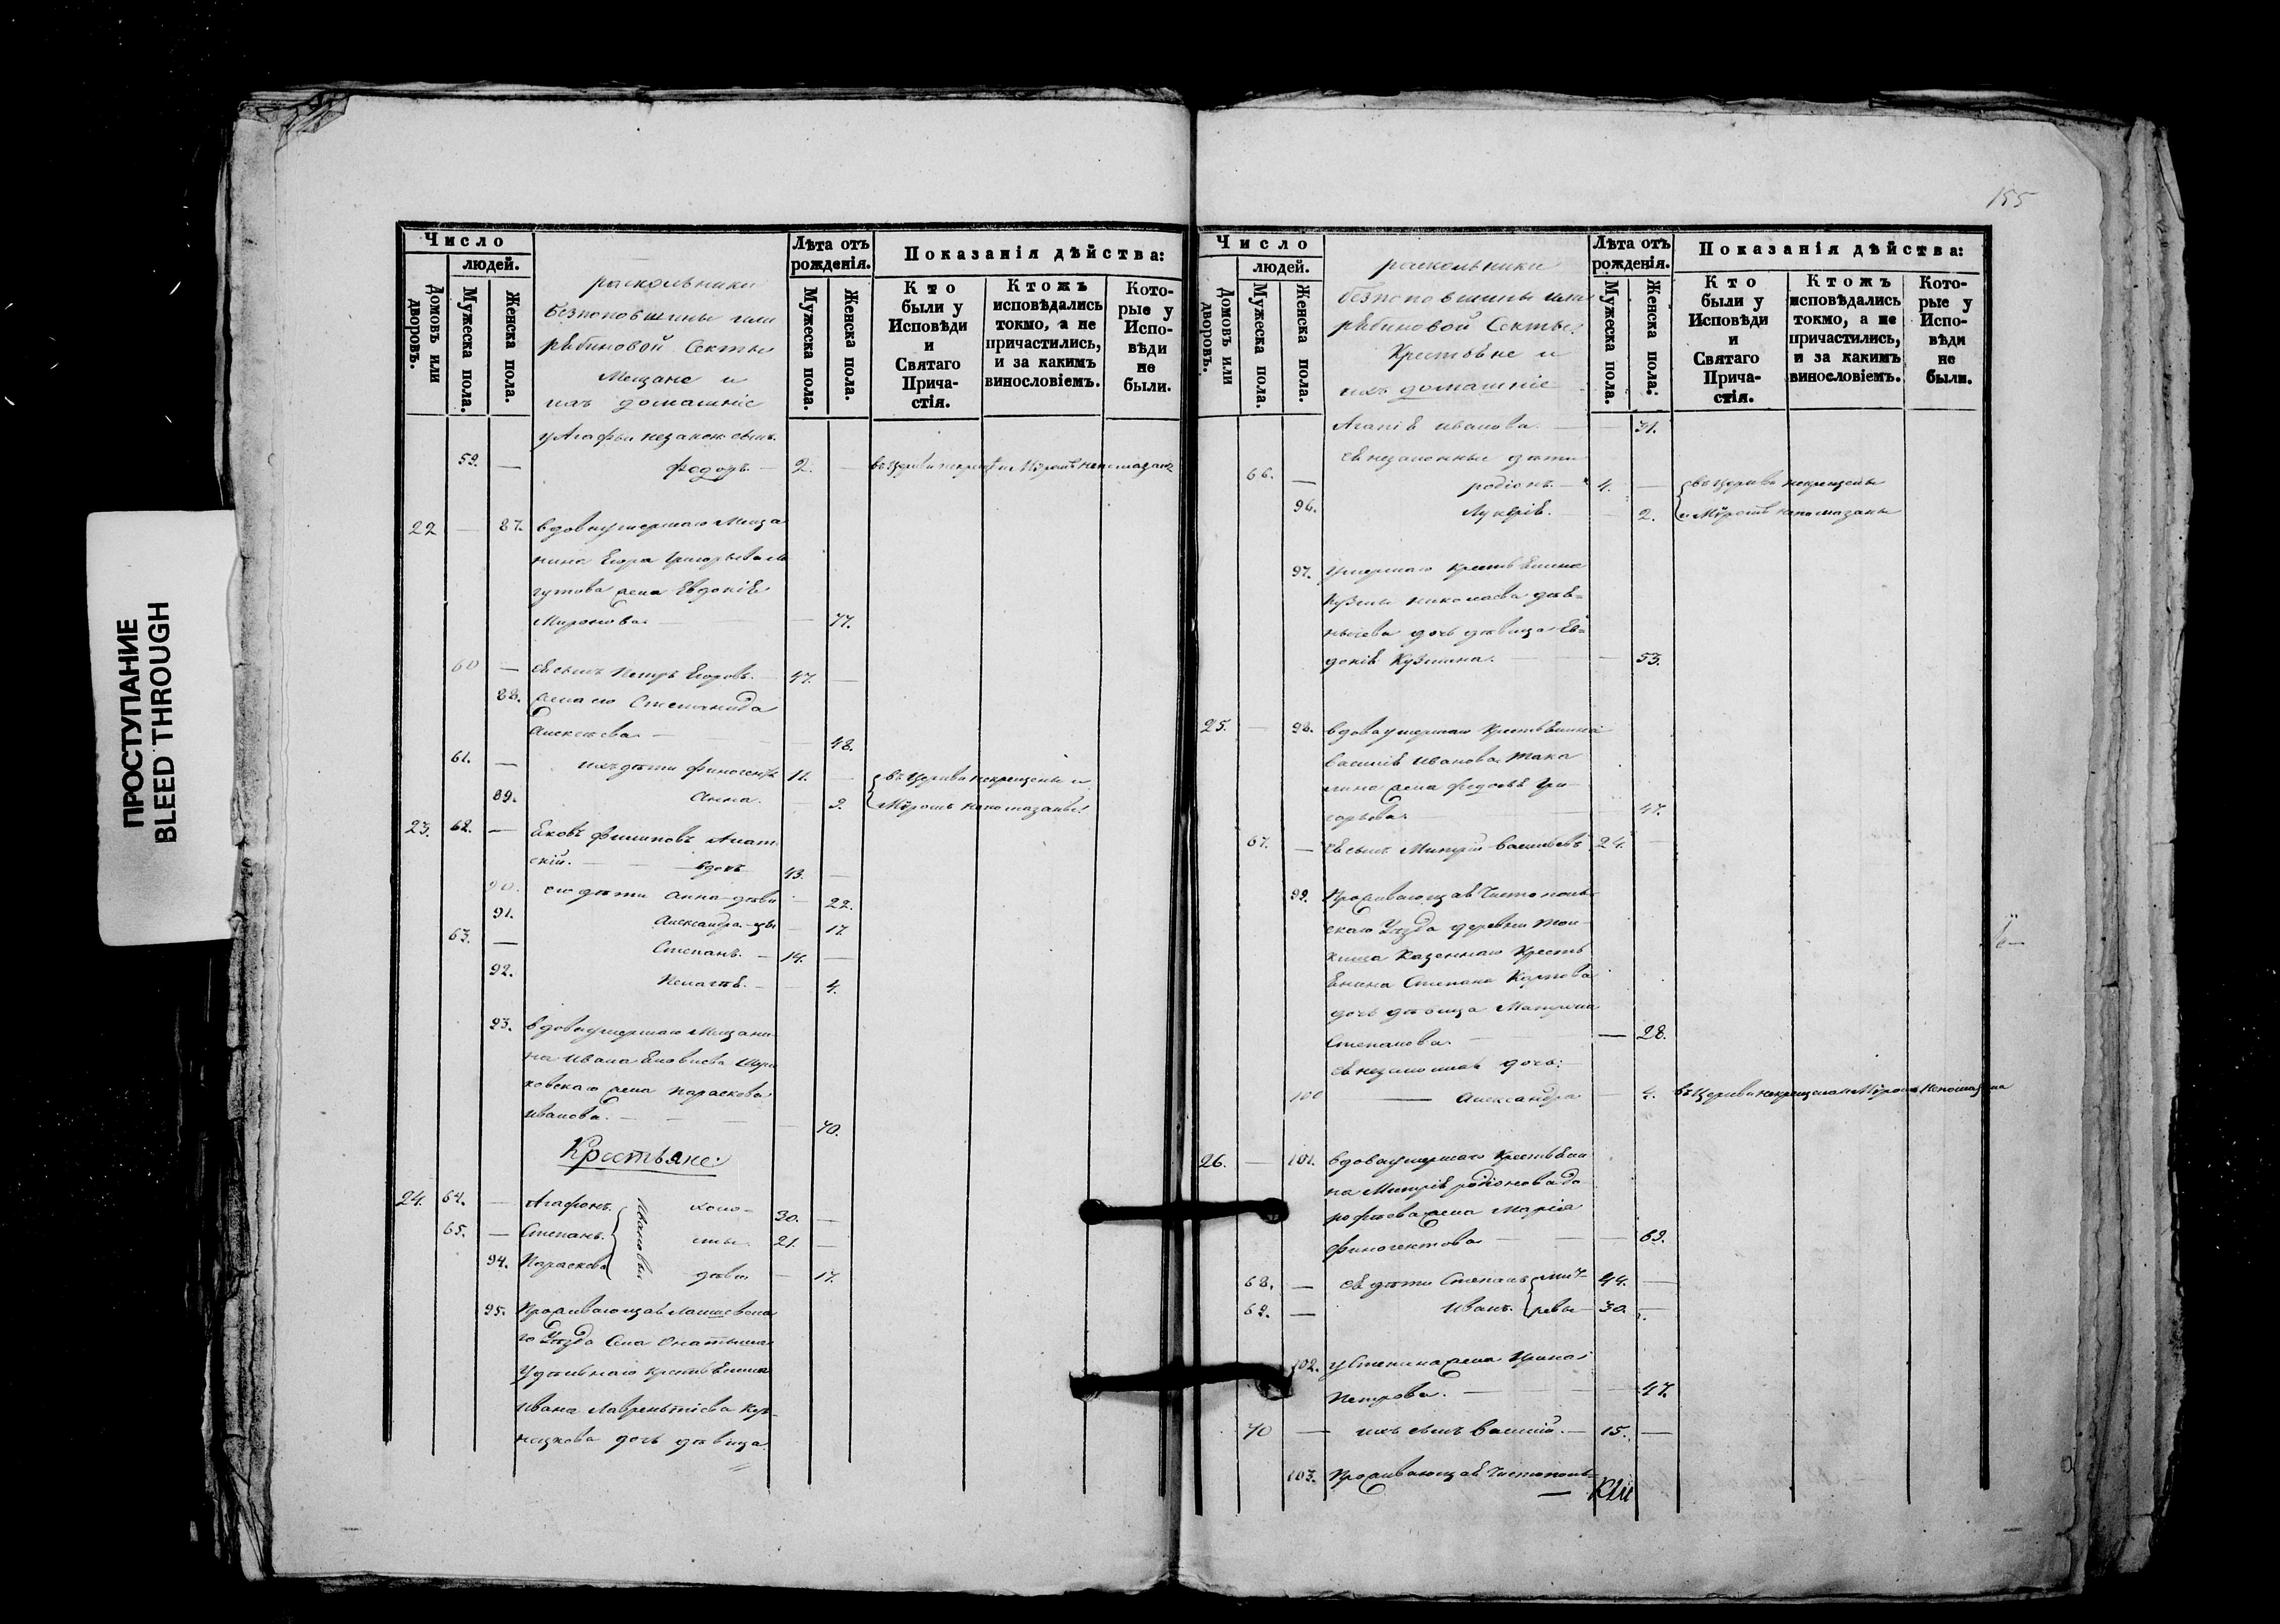 ПРОСТУПАНИЕ
BLEED THROUGH
Число
людей.
Домовъ или дворовъ.
Мужеска пола.
Женска пола.
раскольники
безпоповщины или
рябиновой Секты
Мещане и
ихъ домашніе
Лѣта отъ рожденія.
Мужеска пола.
Женска пола.
Показанія дѣйства:
Кто были у Исповѣди и Святаго Прича-стія.
Ктожъ исповѣдались токмо, а не причастились, и за какимъ винословіемъ.
Кото-рые у Испо-вѣди не были.
у Агафьи незакон. сынъ
59. — федоръ. — 2. — въ церкви некрещ и Мѵромъ непомазанъ
22 — 87. вдова умершаго Меща
нина Егора Григорьева
жена Евдокія
Миронова. — 77.
60 — ея сынъ Петръ Егоровъ. 47. —
88. жена его Степанида
Алексѣева. — 48.
61. — ихъ дѣти финогентъ 11. — въ Церкви некрещены и
89. Анна. — 9. Мѵромъ непомазаны
23. 62. — Яковъ филиповъ
скій. — вдовъ 43. —
90. его дѣти Анна дѣви — 22.
91. Александра — 17.
63. — Степанъ. — 14. —
92. Пелагѣя. — 4.
93. вдова умершаго Мещани
на Ивана
жена Параскова
Иванова. — 70.
Крестьяне:
24. 64. — Агафонъ. Ивановы холо- 30. —
65. — Степанъ. стые 21. —
94. Параскова дѣви — 17.
95. Проживающая Лаишевска
го Уѣзда Села
Удѣльнаго крестьянина
Ивана Лаврентіева Куз-
нецкова дочь дѣвица
155
Число
людей.
Домовъ или дворовъ.
Мужеска пола.
Женска пола.
раскольники
безпоповщины или
рябиновой Секты
Крестьяне и
ихъ домашніе
Лѣта отъ рожденія.
Мужеска пола.
Женска пола.
Показанія дѣйства:
Кто были у Исповѣди и Святаго Прича-стія.
Ктожъ исповѣдались токмо, а не причастились, и за какимъ винословіемъ.
Кото-рые у Испо-вѣди не были.
Агапія Иванова. — 31.
ея незаконные дѣти
66. — родіонъ. — 4. — въ церкви некрещены
96. Лукерія. — 2. и Мѵромъ непомазаны
97. Умершаго крестьянина
Кузмы Николаева
дочь дѣвица Ев=
докія Кузмина. — 53.
25. — 98. вдова умершаго Крестьянина
Василія Иванова
жена федосья Гри-
горьева. — 47.
67. — ея сынъ Митрій Васильевъ 24. —
99. Проживающая Чистополь-
скаго Уѣзда деревни
Казеннаго Кресть
янина Степана Карпова
дочь дѣвица Матрена
Степанова. — 28.
ея незаконная дочь:
100 — Александра — 4. въ Церкви некрещена и Мѵромъ непомазана
26. — 101. вдова умершаго Крестьяни
на Митрія родіонова до
рофѣева жена Марія
финогентова — 69.
68. — ея дѣти Степанъ Мит- 44. —
69. — Иванъ. ревы 30. —
102. у Степана жена Ирина
Петрова. — 47.
70 — ихъ сынъ Василій. — 15. —
103. Проживающая Чистополь=